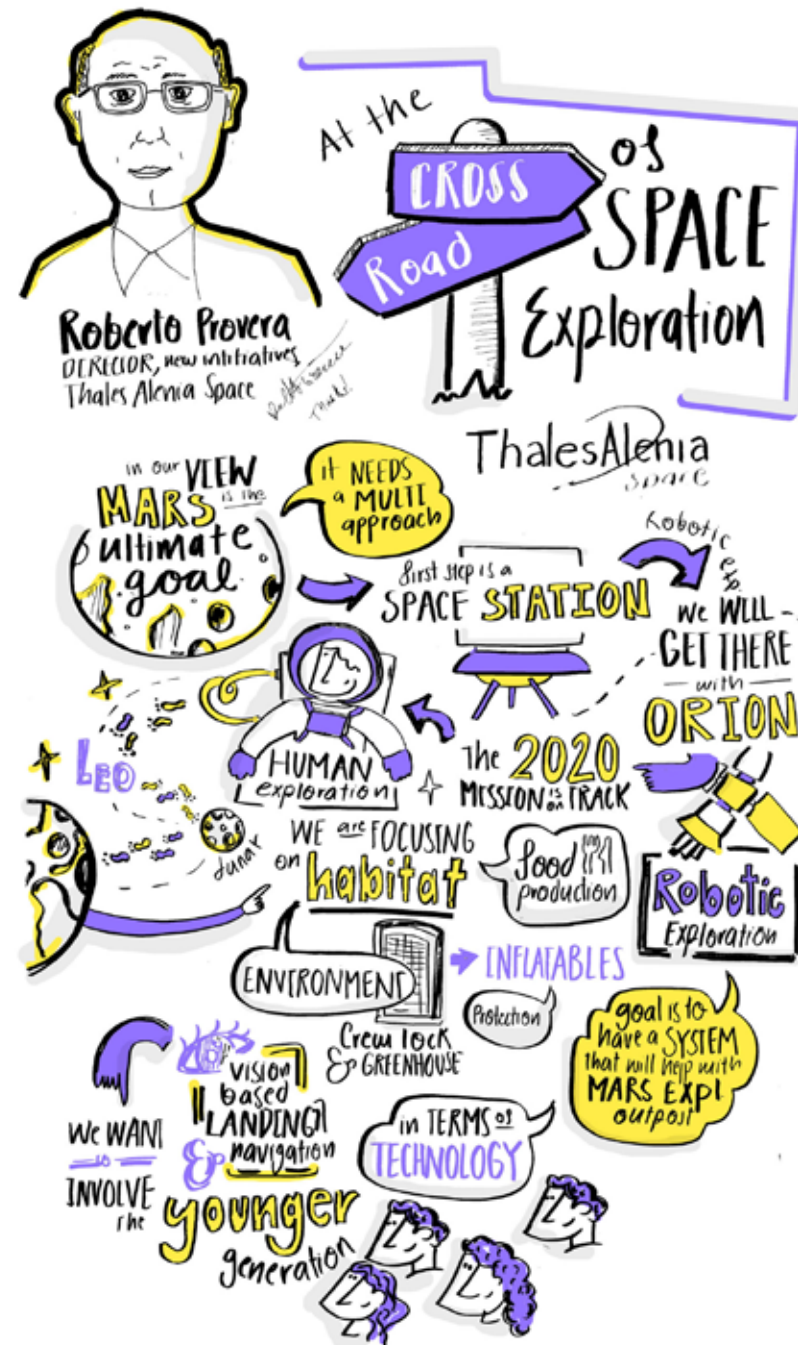 At the
CROSS
Road
of
SPACE
Exploration
Roberto Provera
DIRECTOR, new intitiatives
Thales Alenia Space
ThalesAlenia
Space
in our VIEW
MARS is the
ultimate
goal
it NEEDS
a MULTI
approach
first step is a
SPACE STATION
Robotic exp.
We WILL
GET THERE
with
ORION
The 2020
MISSION is on TRACK
HUMAN
exploration
LEO
lunar
WE are FOCUSING
on habitat
food
production
Robotic
Exploration
ENVIRONMENT
INFLATABLES
Crew lock
& GREENHOUSE
Protection
goal is to
have a SYSTEM
that will help with
MARS EXPL.
outpost
vision
based
LANDING
& navigation
in TERMS of
TECHNOLOGY
We WANT
to
INVOLVE
the younger
generation